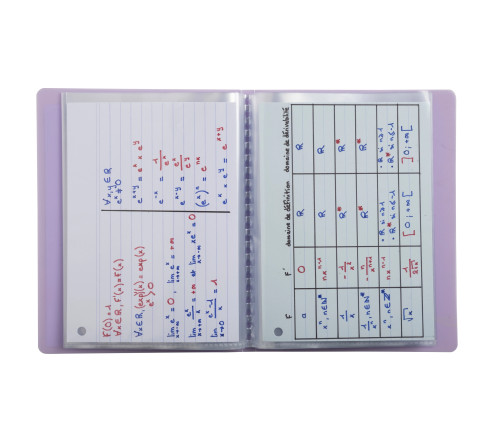 F(0) = 1
∀x∈ℝ, F'(x) = F(x)
∀x∈ℝ, (exp)'(x) = exp(x)
e^x > 0
lim x→-∞ e^x = 0, lim x→+∞ e^x = +∞
lim x→+∞ e^x/x = +∞ et lim x→-∞ xe^x = 0
lim x→0 (e^x - 1)/x = 1
∀x,y∈ℝ
e^x ≠ 0
e^(x+y) = e^x × e^y
e^-x = 1/e^x
e^(x-y) = e^x/e^y
(e^x)^n = e^(nx)
e^x × e^y = e^(x+y)
F F' domaine de définition domaine de dérivabilité
a 0 ℝ ℝ
x^n, n∈ℕ* nx^(n-1) ℝ ℝ
1/x -1/x² ℝ* ℝ*
1/x^n, n∈ℕ* -n/x^(n+1) ℝ* ℝ*
x^n, n∈ℤ* nx^(n-1) • ℝ si n≥1 • ℝ si n≥1
• ℝ* si n≤-1 • ℝ* si n≤-1
√x 1/(2√x) [0;+∞[ ]0;+∞[